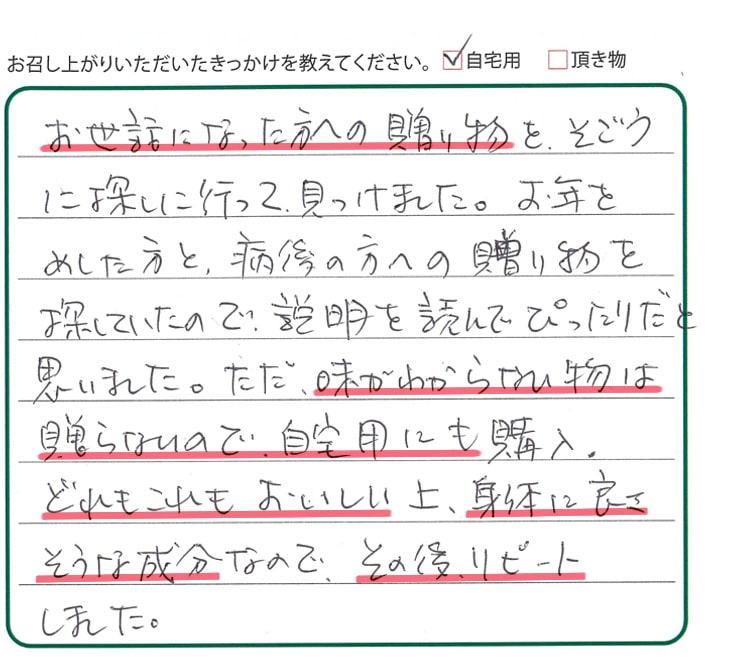 お召し上がりいただいたきっかけを教えてください。 ☑自宅用 □頂き物
お世話になった方への贈り物を、そごう
にお探しに行って、見つけました。お年を
めした方と、病後の方への贈り物を
お探していたので、説明を読んでぴったりだと
思いました。ただ、味がわからない物は
贈らないので、自宅用にも購入。
どれもこれもおいしい上、身体に良さ
そうな成分なので、その後、リピート
しました。